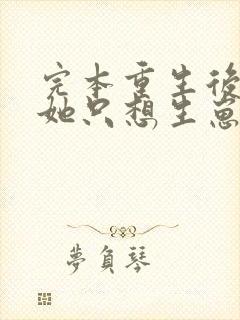 完本重生後
她只想生崽
夢負琴